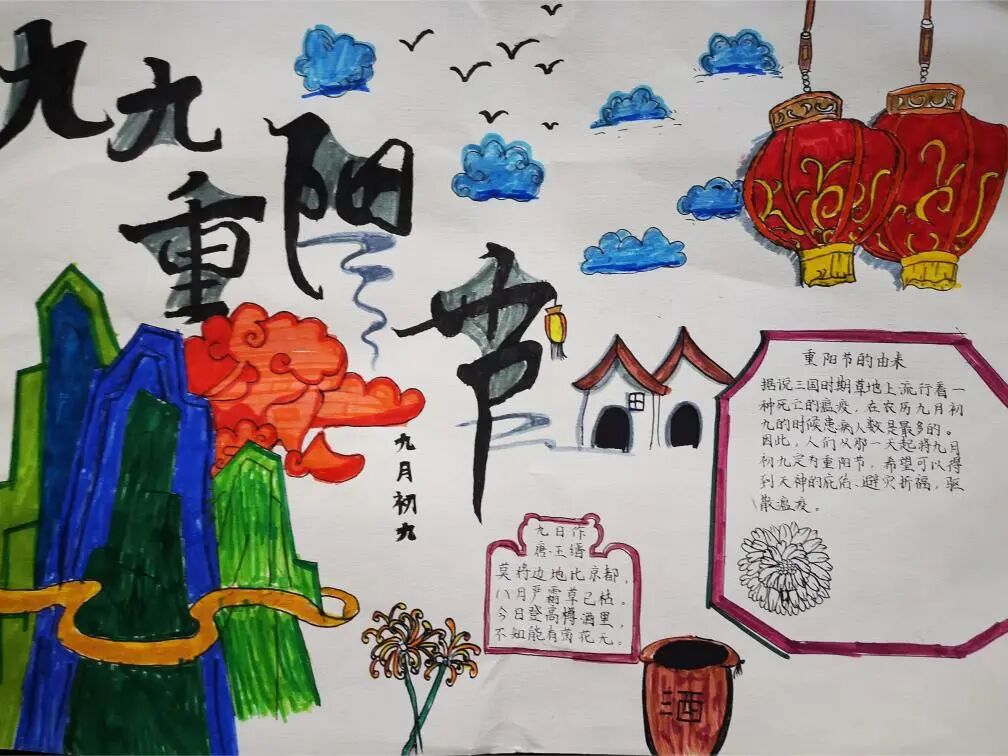 九九重阳节
九月初九
重阳节的由来
据说三国时期草地上流行着一
种死亡的瘟疫，在农历九月初
九的时候患病人数是最多的。
因此，人们从那一天起将九月
初九定为重阳节，希望可以得
到天神的庇佑、避灾祈福，驱
散瘟疫。
九日作
唐·王缙
莫将边地比京都，
八月严霜草已枯。
今日登高樽酒里，
不知能有菊花无。
酒